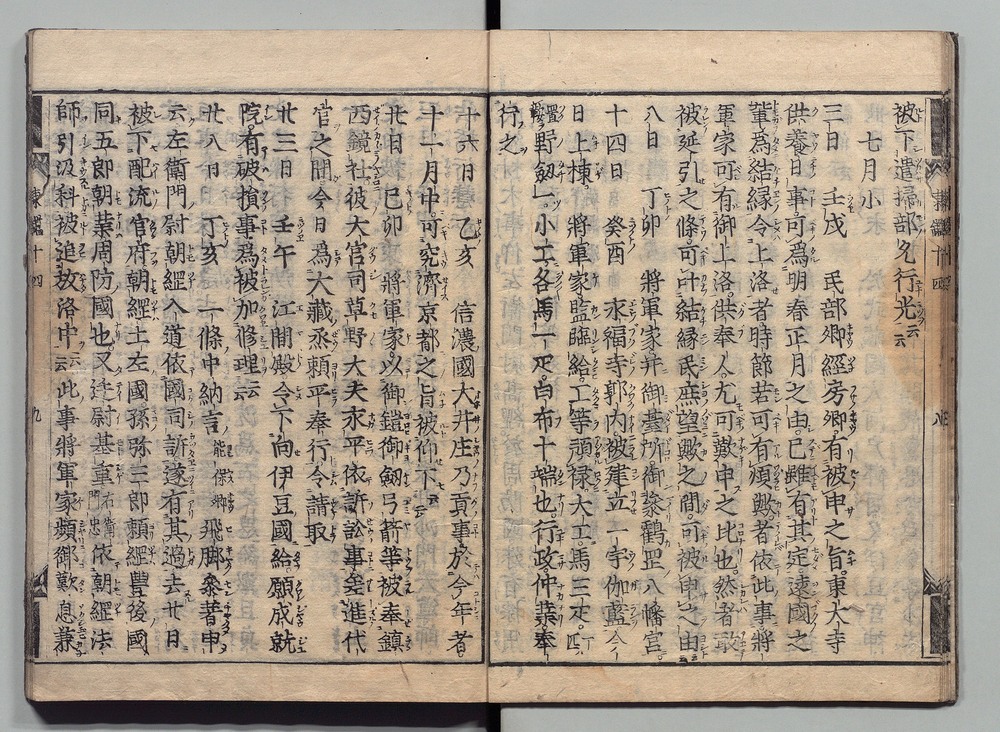 被下遣掃部允行光云云
七月小
三日 壬戌 民部卿經房卿有被申之旨東大寺
供養日事可爲明春正月之由已雖有其定遠國之
輩爲結縁令上洛者時節若可有煩歟者依此事將
軍家可有御上洛供奉人尤可歎申之比也然者敢
被延引之條可叶結縁民庶望歟之間可被申之由云云
八日 丁卯 將軍家并御臺所御參鶴岡八幡宮
十四日 癸酉 永福寺郭内被建立一宇伽藍今
日上棟 將軍家監臨給工等預禄大工馬三疋一疋
置鞍野劔一小工各馬一疋白布十端也行政仲業奉
行之
十六日 乙亥 信濃國大井庄乃貢事於今年者
十一月中可究濟京都之旨被仰下云云
廿日 己卯 將軍家以御鎧御劔弓箭等被奉鎭
西鏡社彼大宮司草野大夫永平依訴訟事差進代
官之間今日爲大藏丞頼平奉行令請取
廿三日 壬午 江間殿令下向伊豆國給願成就
院有被損事爲被加修理云云
廿八日 丁亥 一條中納言能保卿飛脚參著申
云左衛門尉朝經入道依國司訴遂有其過去廿日
被下配流官府朝經土左國孫弥三郎頼經豊後國
同五郎朝業周防國也又廷尉基重右衛門忠依朝經法
師引汲科被追放洛中云云此事將軍家頻御歎息兼
東鑑十四
八
東鑑十四
九